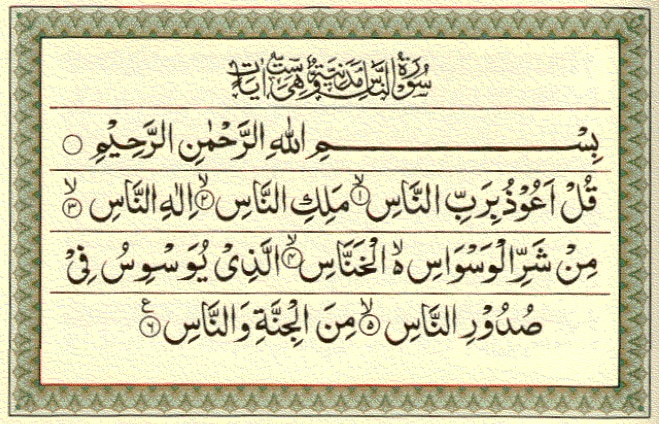 سُوْرَةُ النَّاسِ مَدَنِيَّةٌ وَّهِیَ سِتُّ اٰيَاتٍ
بِسْــــــــــــــــمِ اللهِ الرَّحْمٰنِ الرَّحِيْمِ ○
قُلْ اَعُوْذُ بِرَبِّ النَّاسِ ۙ﴿۱﴾ مَلِكِ النَّاسِ ۙ﴿۲﴾ اِلٰهِ النَّاسِ ۙ﴿۳﴾
مِنْ شَرِّ الْوَسْوَاسِ ۙ۬ الْخَنَّاسِ ۙ﴿۴﴾ الَّذِیْ يُوَسْوِسُ فِیْ
صُدُوْرِ النَّاسِ ۙ﴿۵﴾ مِنَ الْجِنَّةِ وَالنَّاسِ ﴿۶﴾ ع